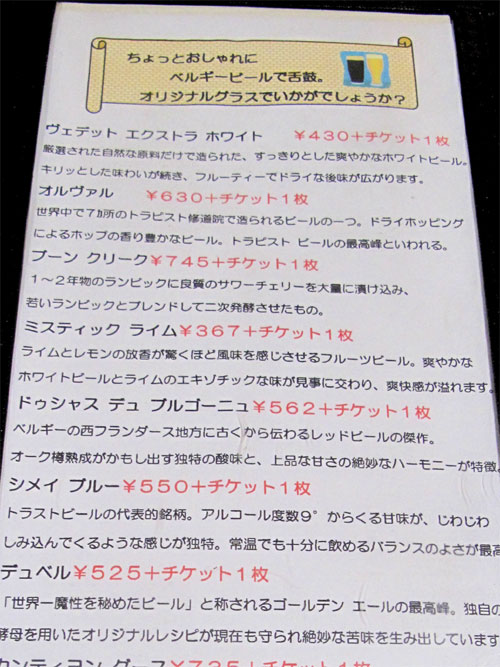 ちょっとおしゃれに
ベルギービールで舌鼓。
オリジナルグラスでいかがでしょうか？
ヴェデット エクストラ ホワイト ￥４３０＋チケット１枚
厳選された自然な原料だけで造られた、すっきりとした爽やかなホワイトビール。
キリッとした味わいが続き、フルーティーでドライな後味が広がります。
オルヴァル ￥６３０＋チケット１枚
世界中で７ヵ所のトラピスト修道院で造られるビールの一つ。ドライホッピング
によるホップの香り豊かなビール。トラピスト ビールの最高峰といわれる。
ブーン クリーク￥７４５＋チケット１枚
１～２年物のランビックに良質のサワーチェリーを大量に漬け込み、
若いランビックとブレンドして二次発酵させたもの。
ミスティック ライム￥３６７＋チケット１枚
ライムとレモンの放香が驚くほど風味を感じさせるフルーツビール。爽やかな
ホワイトビールとライムのエキゾチックな味が見事に交わり、爽快感が溢れます。
ドゥシャス デュ ブルゴーニュ￥５６２＋チケット１枚
ベルギーの西フランダース地方に古くから伝わるレッドビールの傑作。
オーク樽熟成がかもし出す独特の酸味と、上品な甘さの絶妙なハーモニーが特徴。
シメイ ブルー￥５５０＋チケット１枚
トラストビールの代表的銘柄。アルコール度数９°からくる甘味が、じわじわ
しみ込んでくるような感じが独特。常温でも十分に飲めるバランスのよさが最高
デュベル￥５２５＋チケット１枚
「世界一魔性を秘めたビール」と称されるゴールデン エールの最高峰。独自の
酵母を用いたオリジナルレシピが現在も守られ絶妙な苦味を生み出しています
カンティヨン グース￥７３５＋チケット１枚